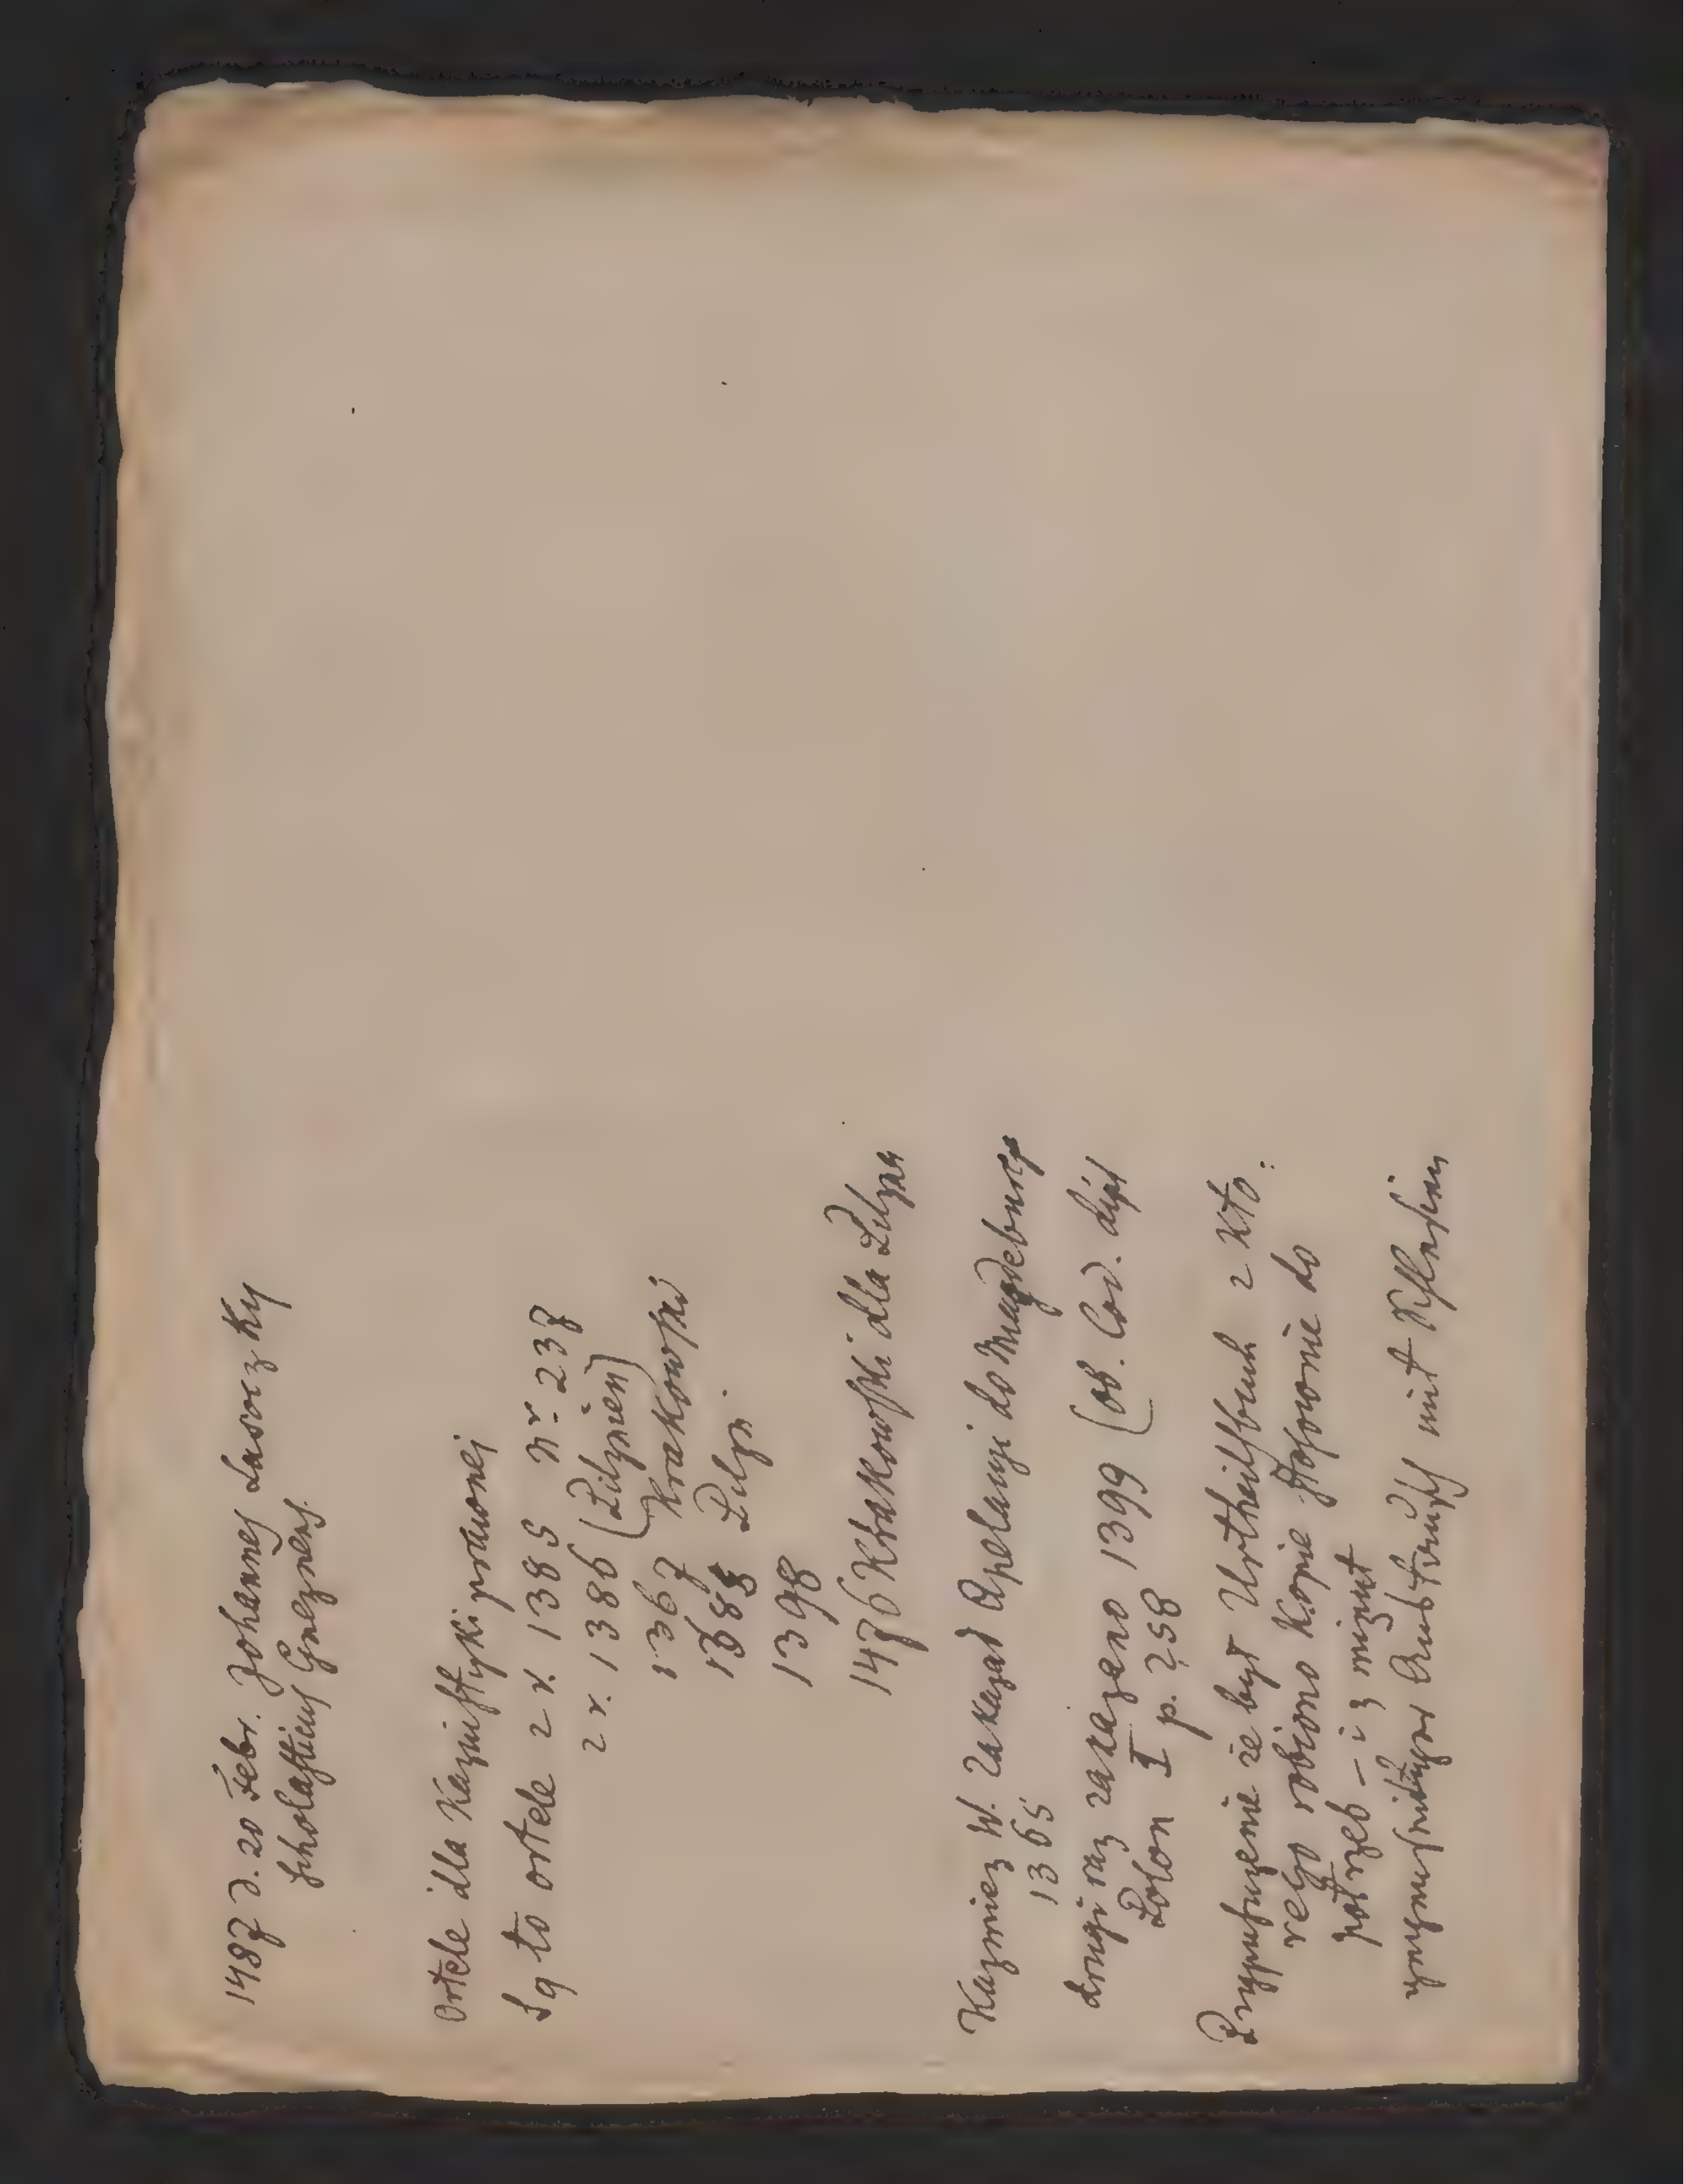 1487 d. 20 Febr. Johannes Lasoczky
Scholasticus Gneznens.
Ortele dla Kazuistyki prawnej
Są to ortele z r. 1385 Nr. 237
z r. 1386 (Pilznień)
1367 Krakowski
1388 Pilzn.
1398
1476 Krakowski dla Pilzna
Kazmierz W. zakazał Apelacyi do Magdeburga
1365
drugi raz zakazano 1399 (ob. Cod. dipl
Polon I p. 258
Przypuszczenie że był Urtheilsbuch z kto:
rego robiono kopie stosownie do
potrzeb – i z minut
Austausch mit Schlesien